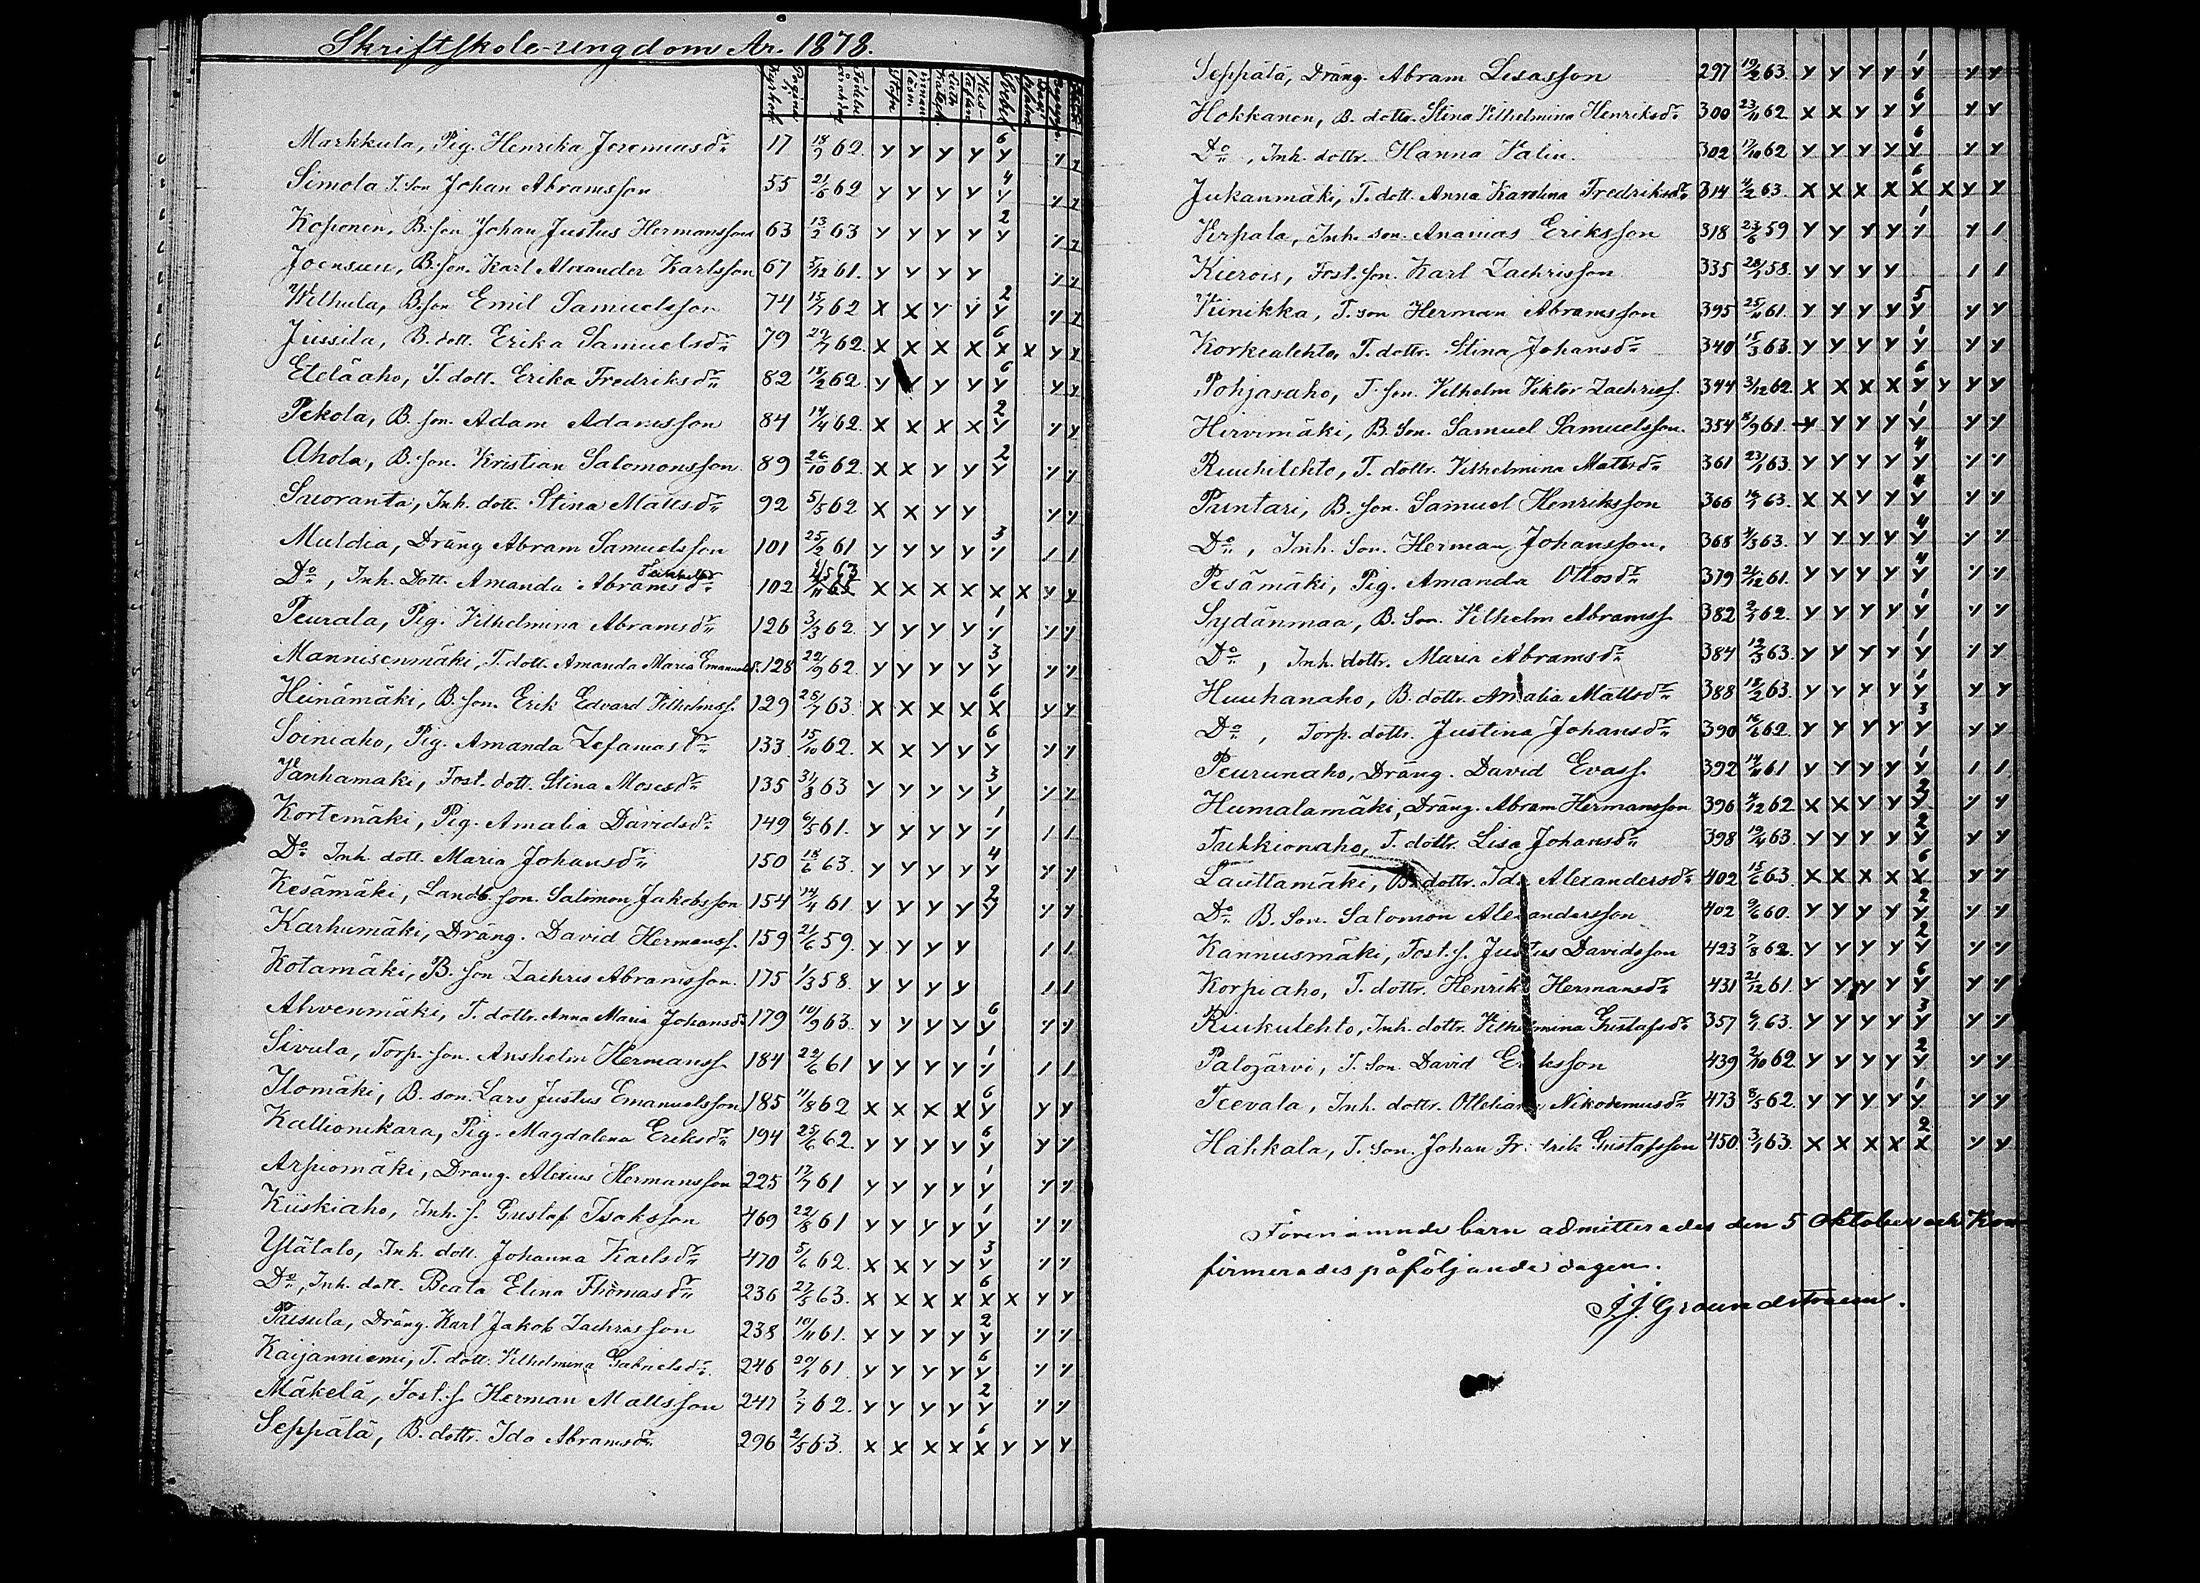 Skriftskole-ungdom År. 1878.
Markkula, Pig. Henrika Jeremiasdr 17 18/9 62. y y y y 6 y y y
Simola T. son Johan Abramsson 55 21/6 62 y y y y 4 y y y
Koponen, B. son Johan Justus Hermansson 63 13/2 63 y y y y 2 y y y
Joensuu, B. son. Karl Alexander Karlsson 67 5/12 61. y y y y y y
Wilhula, B. son Emil Samuelsson 74 15/7 62 x x y y 2 y y y
Jussila, B. dott. Erika Samuelsdr 79 29/7 62. x x x x 6 x x y y
Eteläaho, T. dott. Erika Fredriksdr 82 18/2 62. y y y y 6 y y y
Pekola, B. son. Adam Adamsson 84 14/4 62. x x x x 2 y y y
Ahola, B. son. Kristian Salomonsson 89 26/10 62. x x y y 2 y y y
Suoranta, Inh. dott. Stina Mattsdr 92 5/5 62 x x y y y y
Muldia, Dräng Abram Samuelsson 101 25/2 61 y y y y 3 y 1 1
Do, Inh. Dott. Amanda Abramsdr 102 x x x x x x y y
Peurala, Pig. Vilhelmina Abramsdr 126 3/3 62 y y y y 1 y y y
Mannisenmäki, T. dott. Amanda Maria Emanuelsd. 128 22/9 62. y y y y 3 y y y
Heinämäki, B. son. Erik Edvard Vilhelmss. 129 28/7 63. x x x x 6 x y y
Soiniaho, Pig. Amanda Zefaniasdr 133 15/10 62. x x y y 6 y y y
Vanhamaki, Fost. dott. Stina Mosesdr 135 31/8 63 y y y y 3 y y y
Kortemäki, Pig. Amalia Davidsdr 149 6/5 61. y y y y 1 y 1 1
Do Inh. dott. Maria Johansdr 150 18/6 63. y y y y 4 y y y
Kesämäki, Landb. son. Salomon Jakobsson 154 14/4 61 y y y y 2 y y y
Karhumäki, Dräng. David Hermanss. 159 21/6 59. y y y y 1 1
Kotamäki, B. son Zachris Abramsson. 175 1/3 58. y y y y 1 1
Ahvenmäki, T. dottr. Anna Maria Johansdr 179 10/9 63. y y y y 6 y y y
Sivula, Torp. son. Anshelm Hermanss. 184 22/6 61 y y y y 1 y 1 1
Ilomäki, B. son. Lars Justus Emanuelsson 185 11/8 62 x x x x 6 y y y
Kallionikara, Pig. Magdalena Eriksdr 194 25/6 62. y y y y 6 y y y
Arpiomäki, Dräng. Alexius Hermansson 225 17/7 61 y y y y 1 y y y
Kiiskiaho, Inh. s. Gustaf Isaksson 469 22/8 61 y y y y 1 y y y
Ylätalo, Inh. dott. Johanna Karlsdr 470 5/6 62. x x y y 3 y y y
Do, Inh. dott. Beata Elina Thomasdr 236 27/5 63. x x x x 6 x x y y
Pusula, Dräng. Karl Jakob Zachrisson 238 10/11 61. y y y y 2 y y y
Kaijanniemi, T. dott. Vilhelmina Gabrielsdr 246 29/1 61. y y y y 6 y y y
Mäkelä, Fost. s. Herman Mattsson 247 7/7 62. y y y y 2 y y y
Seppälä, B. dottr. Ida Abramsdr 296 2/5 63. x x x x 6 x y y y
Seppälä, Dräng. Abram Lisasson 297 19/2 63. y y y y 1 y y y
Hokkanen, B. dottr. Stina Vilhelmina Henriksdr 300 23/11 62 x x y y 6 y y y
Do, Inh. dottr. Hanna Palin. 302 17/10 62 y y y y 6 y y y
Jukanmäki, T. dott. Anna Karolina Fredriksdr 314 4/2 63. x x x x 6 x x y y
Virpala, Inh. son. Ananias Eriksson 318 23/6 59 y y y y 1 y y 1
Kierois, Fost. son. Karl Zachrisson 335 28/1 58. y y y y 1 1
Viinikka, T. son Herman Abramsson 395 25/11 61. y y y y 5 y y y
Korkealehto, T. dottr. Stina Johansdr 340 15/3 63. y y y y 1 y y y
Pohjasaho, T. son. Vilhelm Viktor Zachriss. 344 3/12 62. x x x x 6 y y y y
Hirvimäki, B. Son. Samuel Samuelsson. 354 8/9 61. y y y y 1 y y y
Ruuhilehto, T. dottr. Vilhelmina Mattsdr 361 23/1 63. y y y y 4 y y y
Puntari, B. son. Samuel Henriksson 366 16/1 63. x x y y 4 y y y
Do, Inh. Son. Herman Johansson. 368 4/3 63. y y y y 4 y y y
Pesämäki, Pig. Amanda Ottosdr 379 21/12 61. y y y y 4 y y y
Sydänmaa, B. Son. Vilhelm Abramss. 382 2/1 62. y y y y 1 y y y
Do, Inh. dottr. Maria Abramsdr 384 12/3 63. y y y y 1 y y y
Huuhanaho, B. dottr. Amalia Mattsdr 388 18/2 63. y y y y 1 y y y
Do, Torp. dottr. Justina Johansdr 390 16/6 62. y y y y 3 y y y
Peurunaho, Dräng. David Evass. 392 14/11 61 y y y y 1 y 1 1
Humalamäki, Dräng. Abram Hermansson 396 4/12 62. x x y y 2 y y y
Tuhkionaho, T. dottr. Lisa Johansdr 398 19/4 63. y y y y 2 y y y
Lauttamäki, B. dottr. Ida Alexandersdr 402 15/6 63. x x x x 6 x y y
Do B. Son. Salomon Alexandersson 402 9/6 60. y y y y 2 y y y
Kannusmäki, Fost. s. Justus Davidsson 423 7/8 62. y y y y 2 y y y
Korpiaho, T. dottr. Henrika Hermansdr 431 21/12 61. y y y y 6 y y y
Riukulehto, Inh. dottr. Vilhelmina Gustafsdr 357 6/1 63. y y y y 3 y y y
Palojärvi, T. Son. David Eriksson 439 2/10 62. y y y y 2 y y y
Teevala, Inh. dottr. Nikodemusdr 473 8/5 62. y y y y 1 y y y
Hahkala, T. Son. Johan Fredrik Gustafsson 450. 3/1 63. x x x x 2 x y y
Förenämnde barn admitterades den 5 Oktober och Kon
firmerades påföljande dagen.
J.J. Groundstroem.